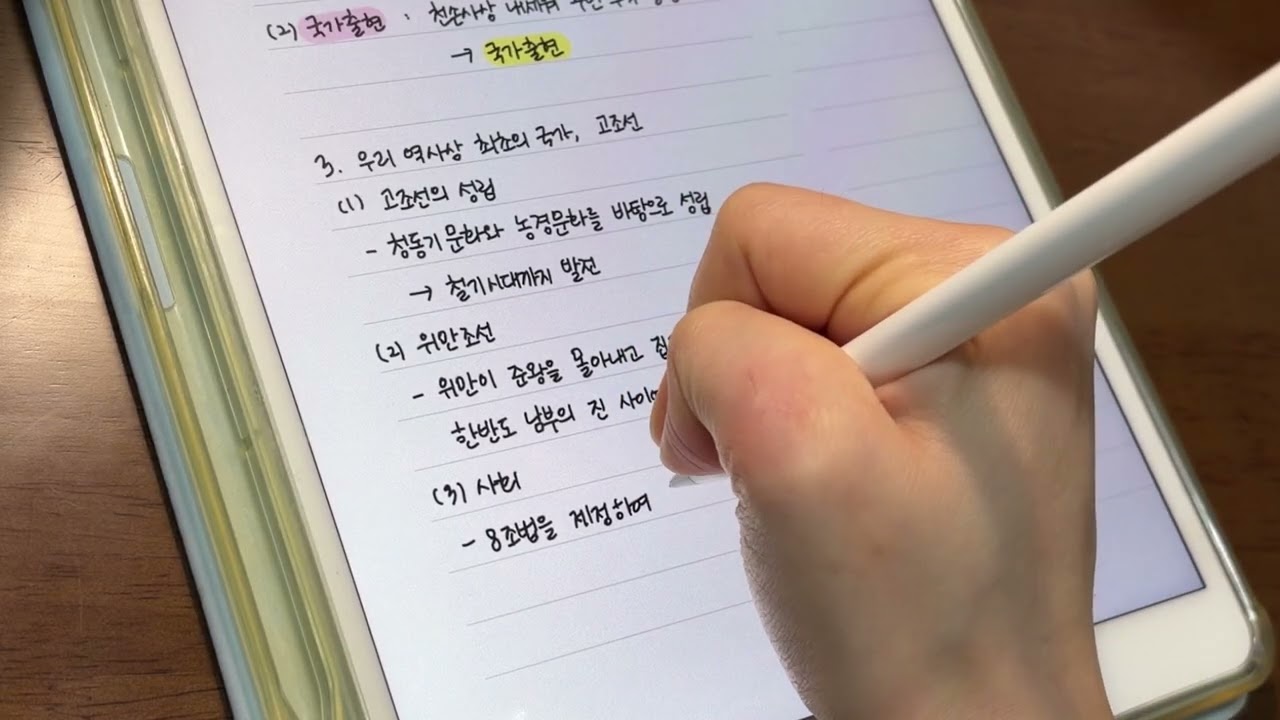 (2) 국가출현 : 천손사상 내세워
→ 국가출현
3. 우리 역사상 최초의 국가, 고조선
(1) 고조선의 성립
- 청동기 문화와 농경문화를 바탕으로 성립
→ 철기시대까지 발전
(2) 위만조선
- 위만이 준왕을 몰아내고
한반도 남부의 진 사이
(3) 사회
- 8조법을 제정하여